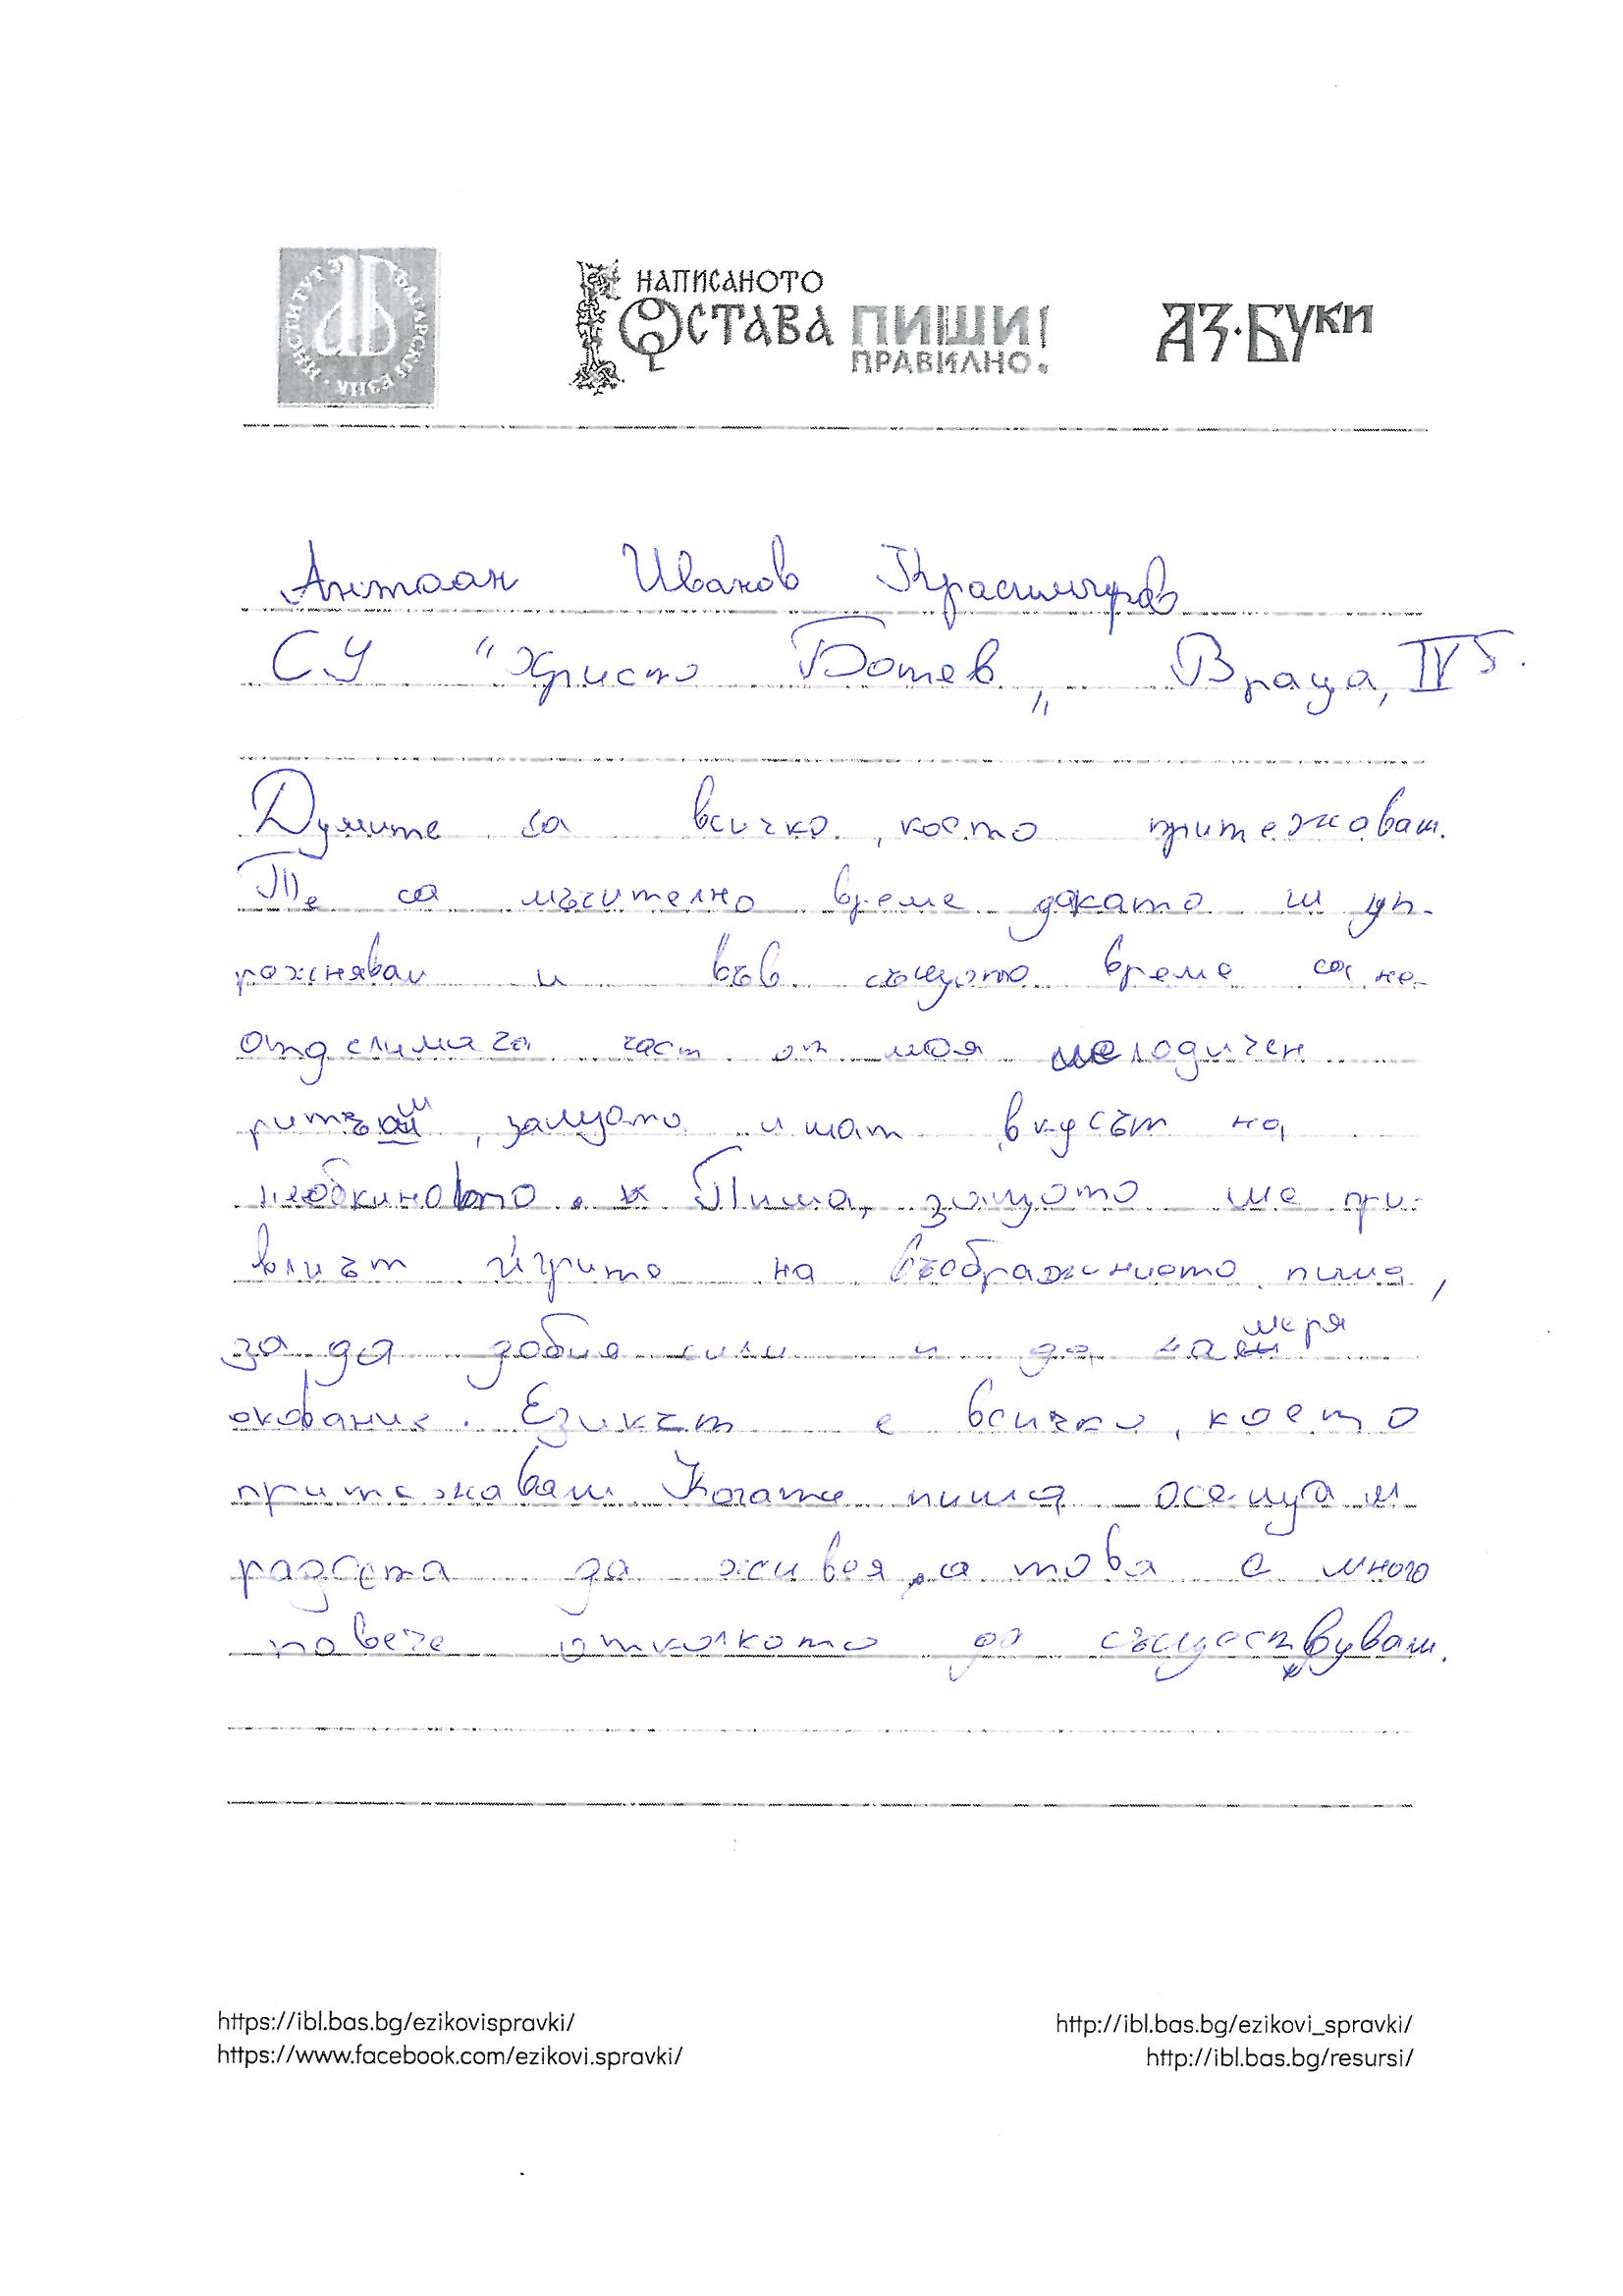 ИНСТИТУТ ЗА БЪЛГАРСКИ ЕЗИК
НАПИСАНОТО
ОСТАВА ПИШИ!
ПРАВИЛНО.
АЗ·БУКИ
Антоан Иванов Красимиров
СУ "Христо Ботев„ Враца, IV Г.
Думите са всичко, което притежавам.
Те са мъчително време докато ги уп-
ражнявам и във същото време са не-
отделимага част от моя мелодичен
ритъм, защото имат вкусът на
необкиновто. Пиша, защото ме при-
вличт игрите на въображението пиша,
за да добия сили и да намеря
окование. Езикът е всичко, което
притежавам. Когато пиша осещам
радоста да живея, а това е много
повече отколкото да съществувам.
https://ibl.bas.bg/ezikovispravki/
https://www.facebook.com/ezikovi.spravki/
http://ibl.bas.bg/ezikovi_spravki/
http://ibl.bas.bg/resursi/